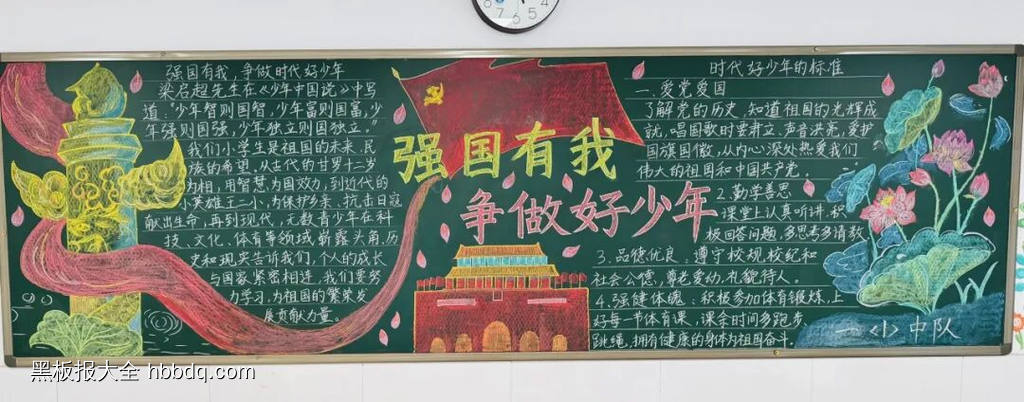 强国有我，争做时代好少年
梁启超先生在《少年中国说》中写
道："少年智则国智，少年富则国富，少
年强则国强，少年独立则国独立。"
我们小学生是祖国的未来、民
族的希望。从古代的甘罗十二岁
为相，用智慧为国效力，到近代的
小英雄王二小，为保护乡亲、抗击日寇
献出生命，再到现代，无数青少年在科
技、文化、体育等领域崭露头角，历
史和现实告诉我们，个人的成长
与国家紧密相连，我们要努
力学习，为祖国的繁荣发
展贡献力量。
强国有我
争做好少年
时代好少年的标准
一、爱党爱国
了解党的历史，知道祖国的光辉成
就，唱国歌时要肃立、声音洪亮，爱护
国旗国徽，从内心深处热爱我们
伟大的祖国和中国共产党。
2、勤学善思
课堂上认真听讲，积
极回答问题，多思考多请教
3、品德优良：遵守校规，校纪和
社会公德，尊老爱幼，礼貌待人。
4、强健体魄：积极参加体育锻炼，上
好每一节体育课，课余时间多跑步
跳绳，拥有健康的身体为祖国奋斗。
一〈1〉中队
黑板报大全 hbbdq.com
8
7
6
5
4